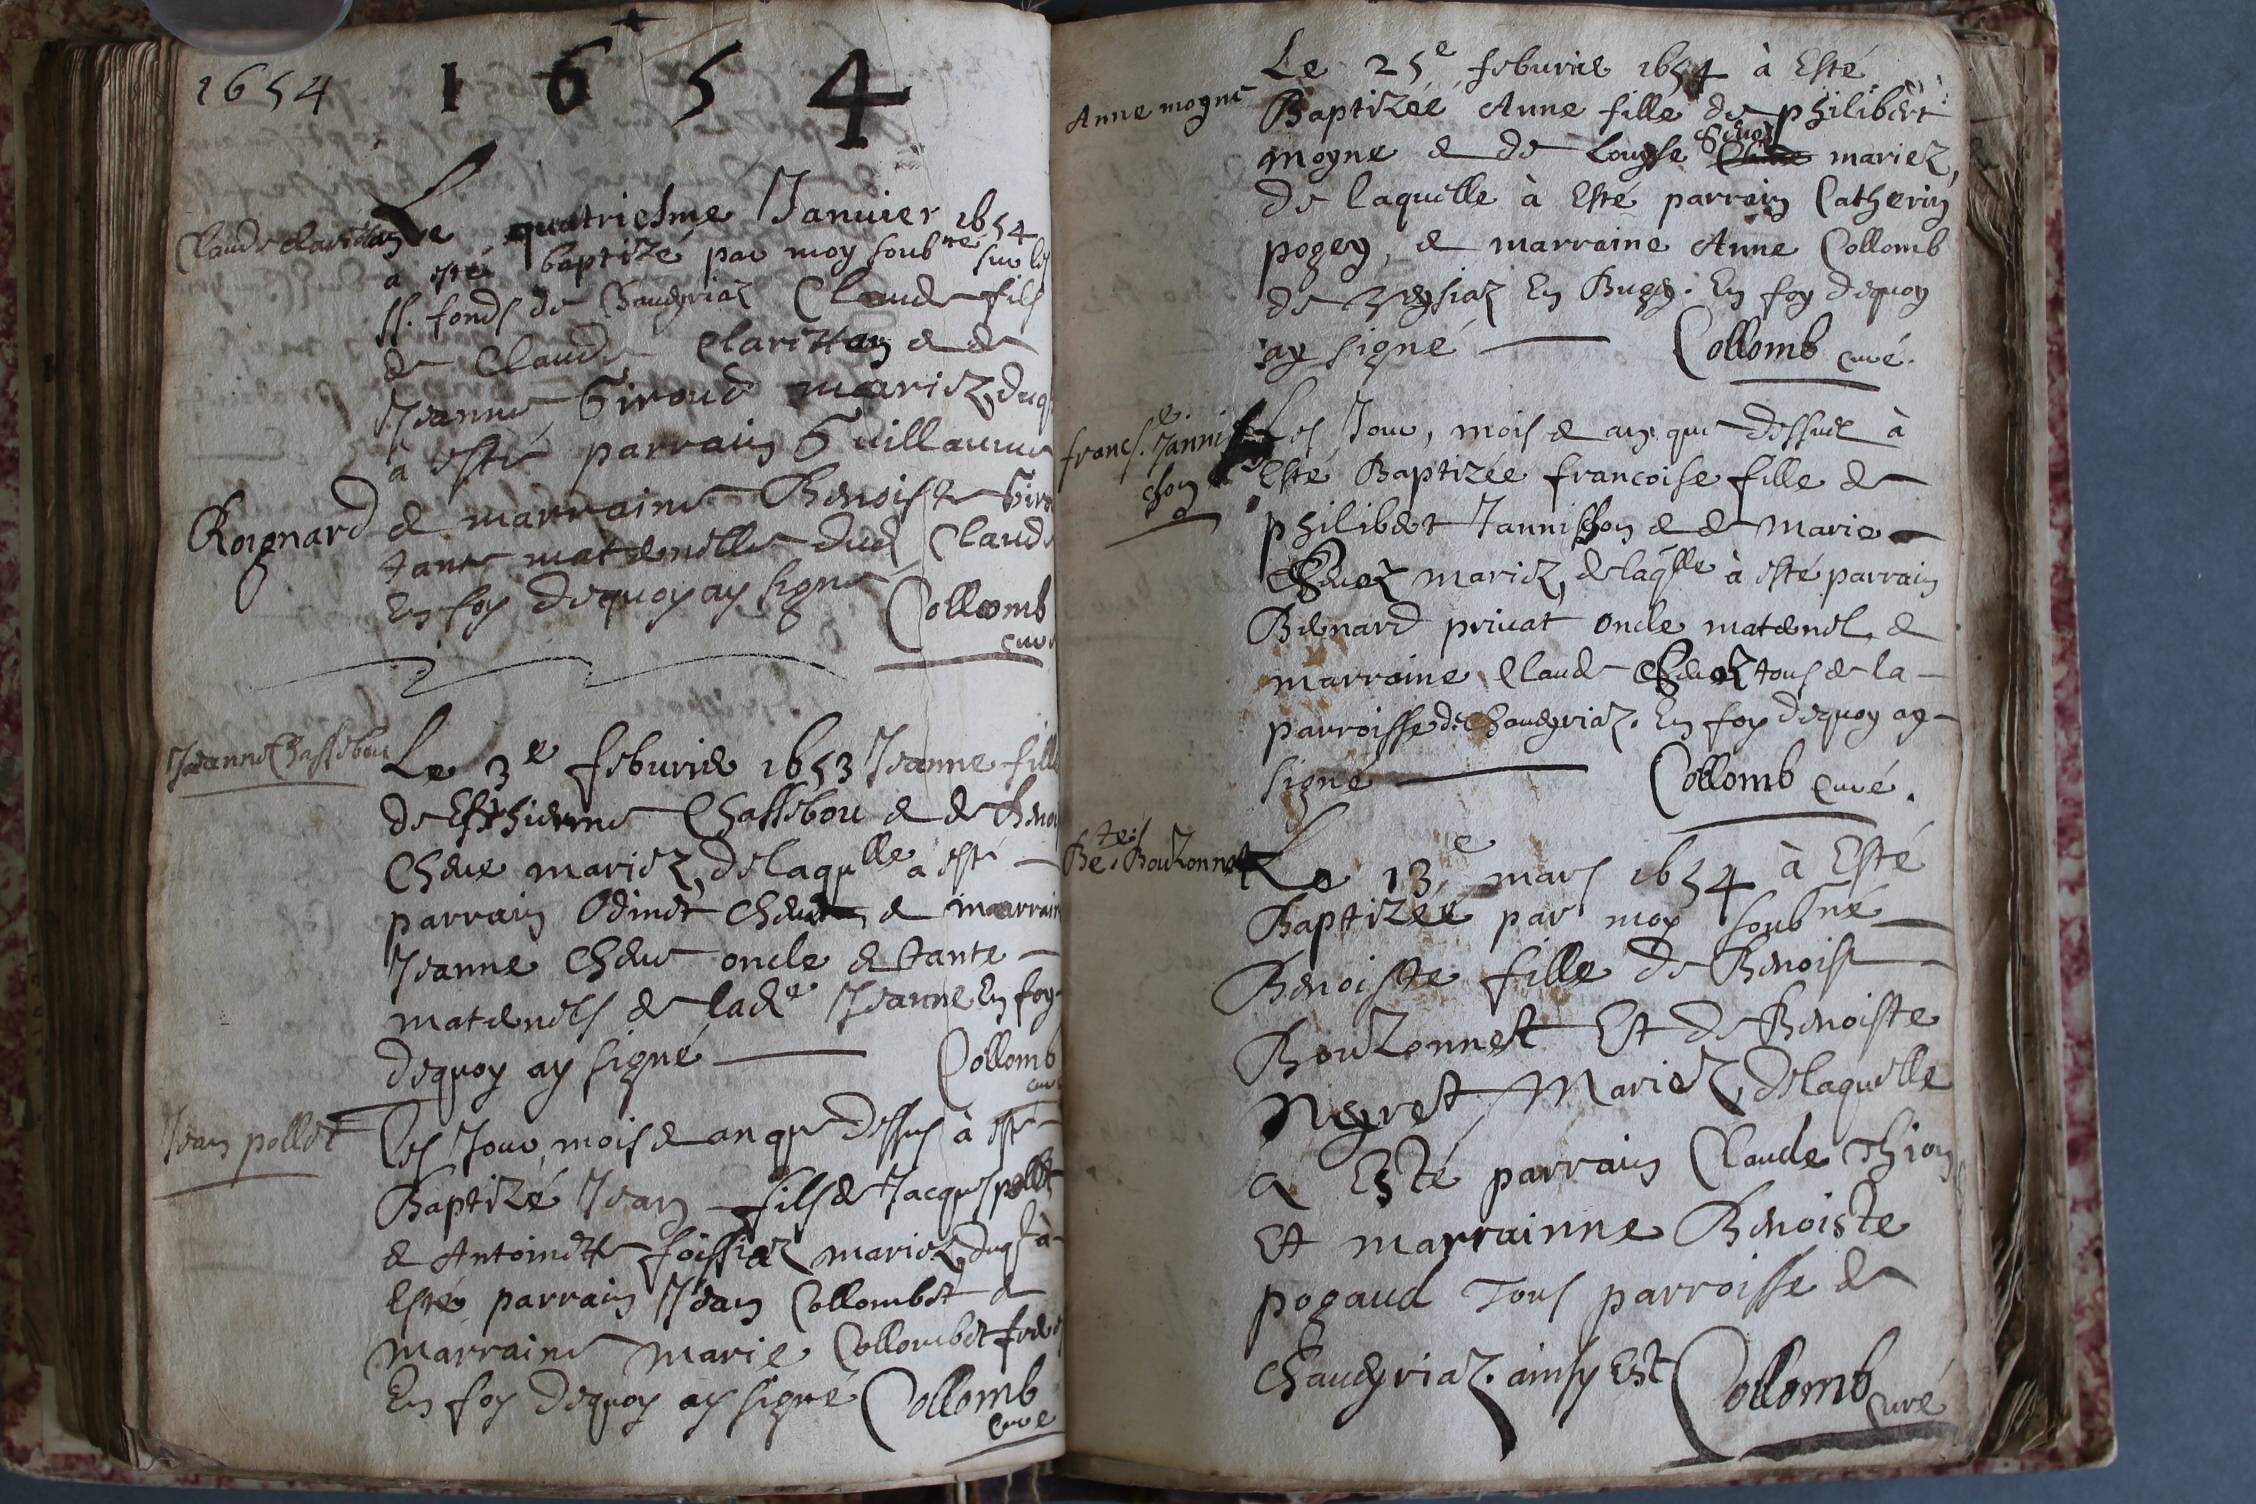 1654
1654
Claude Claritton
Le quatriesme Januier 1654
a esté baptizé par moy soub.né sur les
ss. fonds de Chaueyriaz Claude fils
de Claude Claritton & de
Jeanne Giroud mariez, duq
à esté parrain Guillaume
Roignard & marraine Benoiste Gir
tante maternelle dud Claude
En foy dequoy ay signé Collomb
curé
Jeanne Chassibou
Le 3e feburier 1653 Jeanne fille
de Esthienne Chassibou & de Beno
Cheue mariez, de laqulle a esté
parrain Odinet & marrain
Jeanne Cheue oncle & tante
maternels de lade Jeanne En foy
dequoy ay signé Collomb
cur
Jean pollet
Les Jour, mois & an que dessus à esté
Baptizé Jean fils de Jacques pollet
& Antoinette foissiaz mariez, duql à
Esté parrain Jean Collombet &
marraine marie Collombet
En foy dequoy ay signé Collomb
curé
Anne moyne
Le 25e feburier 1654 à Esté
Baptizée Anne fille de philibert
moyne & de Louyse mariez,
de laquelle à Esté parrain Catherin
pogey, & marraine Anne Collomb
de En Bugey. En foy dequoy
ay signé Collomb curé.
franc.e Janni
chon
Les Jour, mois & an que dessus à
Esté Baptizée francoise fille de
philibert Jannichon & de Marie
mariez, de laqlle à esté parrain
Bernard priuat oncle maternel &
marraine Claude tous de la
parroisse de Chaueyriaz. En foy dequoy ay
signé Collomb curé.
Bete. Bouzonnet
Le 13e mars 1654 à Esté
Baptizée par moy soub.né
Benoiste fille de Benoist
Bouzonnet Et de Benoiste
Neyret, Mariez, de laquelle
a Esté parrain Claude Thion
Et marrainne Benoiste
pogaud Tous parroisse de
Chaueyriaz. ainsy Est Collomb
curé